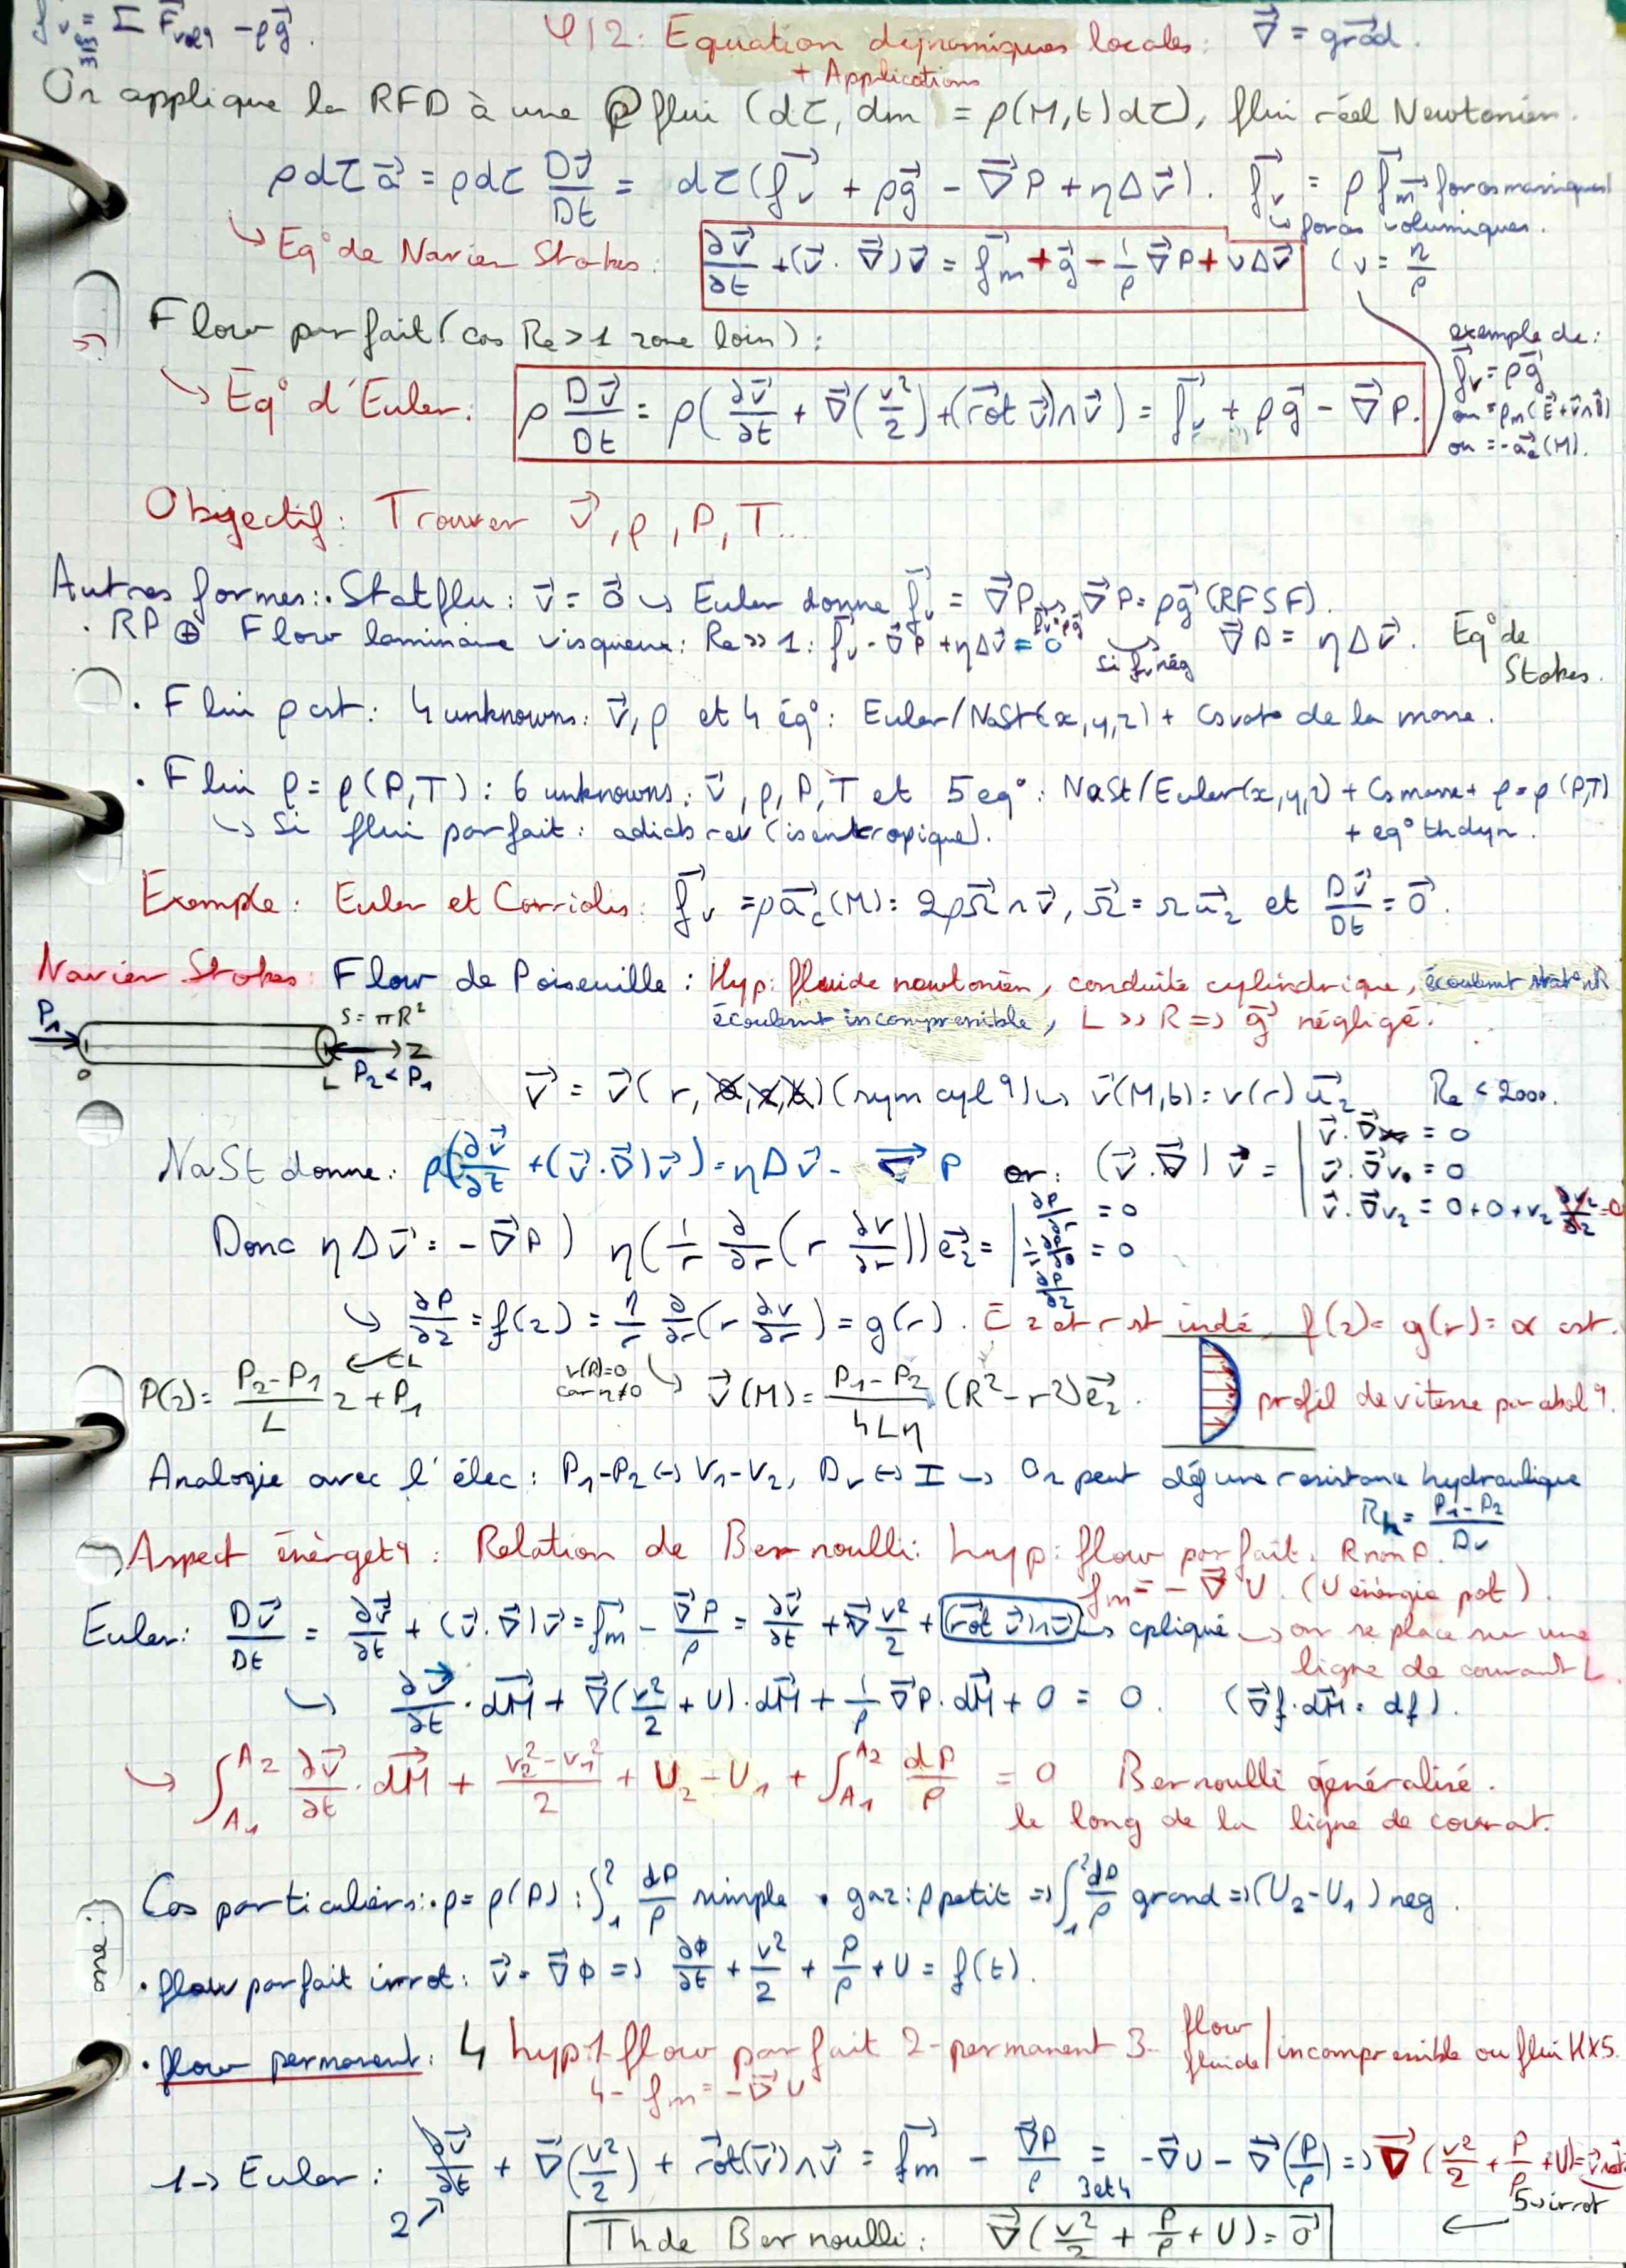 = Σ F⃗vol - ρg⃗.
φ12: Equation dynamiques locales: ∇⃗ = grad⃗.
+ Applications
On applique la RFD à une ρ flui (dτ, dm = ρ(M,t)dτ), flui réel Newtonien.
ρdτ a⃗ = ρdτ Dv⃗/Dt = dτ(f⃗v + ρg⃗ - ∇⃗P + ηΔv⃗). f⃗v = ρ f⃗m → forces massiques
↳ forces volumiques.
↳ Eq° de Navier Stokes: ∂v⃗/∂t + (v⃗.∇⃗)v⃗ = f⃗m + g⃗ - 1/ρ ∇⃗P + νΔv⃗ (ν = η/ρ
Flow parfait (cas Re > 1 zone loin):
exemple de:
f⃗v = ρg⃗
ou = ρm(E⃗ + v⃗∧B⃗)
ou = -a⃗e(M).
↳ Eq° d'Euler: ρ Dv⃗/Dt = ρ(∂v⃗/∂t + ∇⃗(v²/2) + (rot⃗ v⃗)∧v⃗) = f⃗v + ρg⃗ - ∇⃗P.
Objectif: Trouver v⃗, ρ, P, T...
Autres formes: · Statflu: v⃗ = 0⃗ ↳ Euler donne f⃗v = ∇⃗P ↳ ∇⃗P = ρg⃗ (RFSF).
· RP ⊕ Flow laminaire visqueux: Re >> 1: f⃗v - ∇⃗P + ηΔv⃗ = 0⃗ ↳ si fv nég ∇⃗P = ηΔv⃗. Eq° de Stokes.
· Flui ρ cst: 4 unknowns: v⃗, ρ et 4 éq°: Euler/NaSt(x,y,z) + Csvat° de la masse.
· Flui ρ = ρ(P,T): 6 unknowns: v⃗, ρ, P, T et 5 eq°: NaSt/Euler(x,y,z) + Cs masse + ρ = ρ(P,T)
↳ Si flui parfait: adiab rev (isentropique). + eq° thdyn.
Exemple: Euler et Corriolis: f⃗v = ρa⃗c(M) = 2ρΩ⃗∧v⃗, Ω⃗ = Ωu⃗z et Dv⃗/Dt = 0⃗.
Navier Stokes: Flow de Poiseuille: Hyp: fluide newtonien, conduite cylindrique, écoulemt stat° nR
écoulemt incompressible, L >> R => g⃗ négligé.
P1 S = πR² z
0 L P2 < P1
v⃗ = v⃗(r, θ, z, t) (sym cylq) ↳ v⃗(M,t) = v(r) u⃗z Re < 2000.
NaSt donne: ρ(∂v⃗/∂t + (v⃗.∇⃗)v⃗) = ηΔv⃗ - ∇⃗P or: (v⃗.∇⃗)v⃗ = | v⃗.∇⃗ = 0
v⃗.∇⃗vθ = 0
v⃗.∇⃗vz = 0+0+vz ∂vz/∂z = 0
Donc ηΔv⃗ = -∇⃗P ) η(1/r ∂/∂r (r ∂v/∂r)) e⃗z = | ∂P/∂r = 0
1/r ∂P/∂θ = 0
∂P/∂z
↳ ∂P/∂z = f(z) = η/r ∂/∂r (r ∂v/∂r) = g(r). C z et r st indé, f(z) = g(r) = α cst.
P(z) = (P2-P1)/L z + P1 ← CL v(R)=0 car η≠0 ↳ v⃗(M) = (P1-P2)/4Lη (R²-r²) e⃗z. profil de vitesse parabolq.
Analogie avec l'élec: P1-P2 ↔ V1-V2, Dv ↔ I ↳ On peut déf une resistance hydraulique
Rh = (P1-P2)/Dv
Aspect énergetq: Relation de Bernoulli: hyp: flow parfait, R non P.
f⃗m = -∇⃗U. (U énergie pot).
Euler: Dv⃗/Dt = ∂v⃗/∂t + (v⃗.∇⃗)v⃗ = f⃗m - ∇⃗P/ρ = ∂v⃗/∂t + ∇⃗v²/2 + (rot⃗ v⃗)∧v⃗ ↳ cpliqué ↳ on se place sur une
ligne de courant L.
↳ ∂v⃗/∂t . dM⃗ + ∇⃗(v²/2 + U).dM⃗ + 1/ρ ∇⃗P.dM⃗ + 0 = 0. (∇⃗f.dM⃗ = df).
↳ ∫A1^A2 ∂v⃗/∂t . dM⃗ + (v2²-v1²)/2 + U2-U1 + ∫A1^A2 dP/ρ = 0 Bernoulli généralisé.
le long de la ligne de courant.
Cas particuliers: · ρ = ρ(P): ∫1^2 dP/ρ simple · gaz: ρ petit => ∫1^2 dP/ρ grand => (U2-U1) neg.
· flow parfait irrot: v⃗ = ∇⃗φ => ∂φ/∂t + v²/2 + P/ρ + U = f(t).
· flow permanent: 4 hyp 1- flow parfait 2- permanent 3- flow/fluide incompressible ou flui HX5.
4- f⃗m = -∇⃗U
1→ Euler: ∂v⃗/∂t + ∇⃗(v²/2) + rot⃗(v⃗)∧v⃗ = f⃗m - ∇⃗P/ρ = 3et4 -∇⃗U - ∇⃗(P/ρ) => ∇⃗(v²/2 + P/ρ + U) = v⃗∧rot
2↗ 5→irrot
Th de Bernoulli: ∇⃗(v²/2 + P/ρ + U) = 0⃗